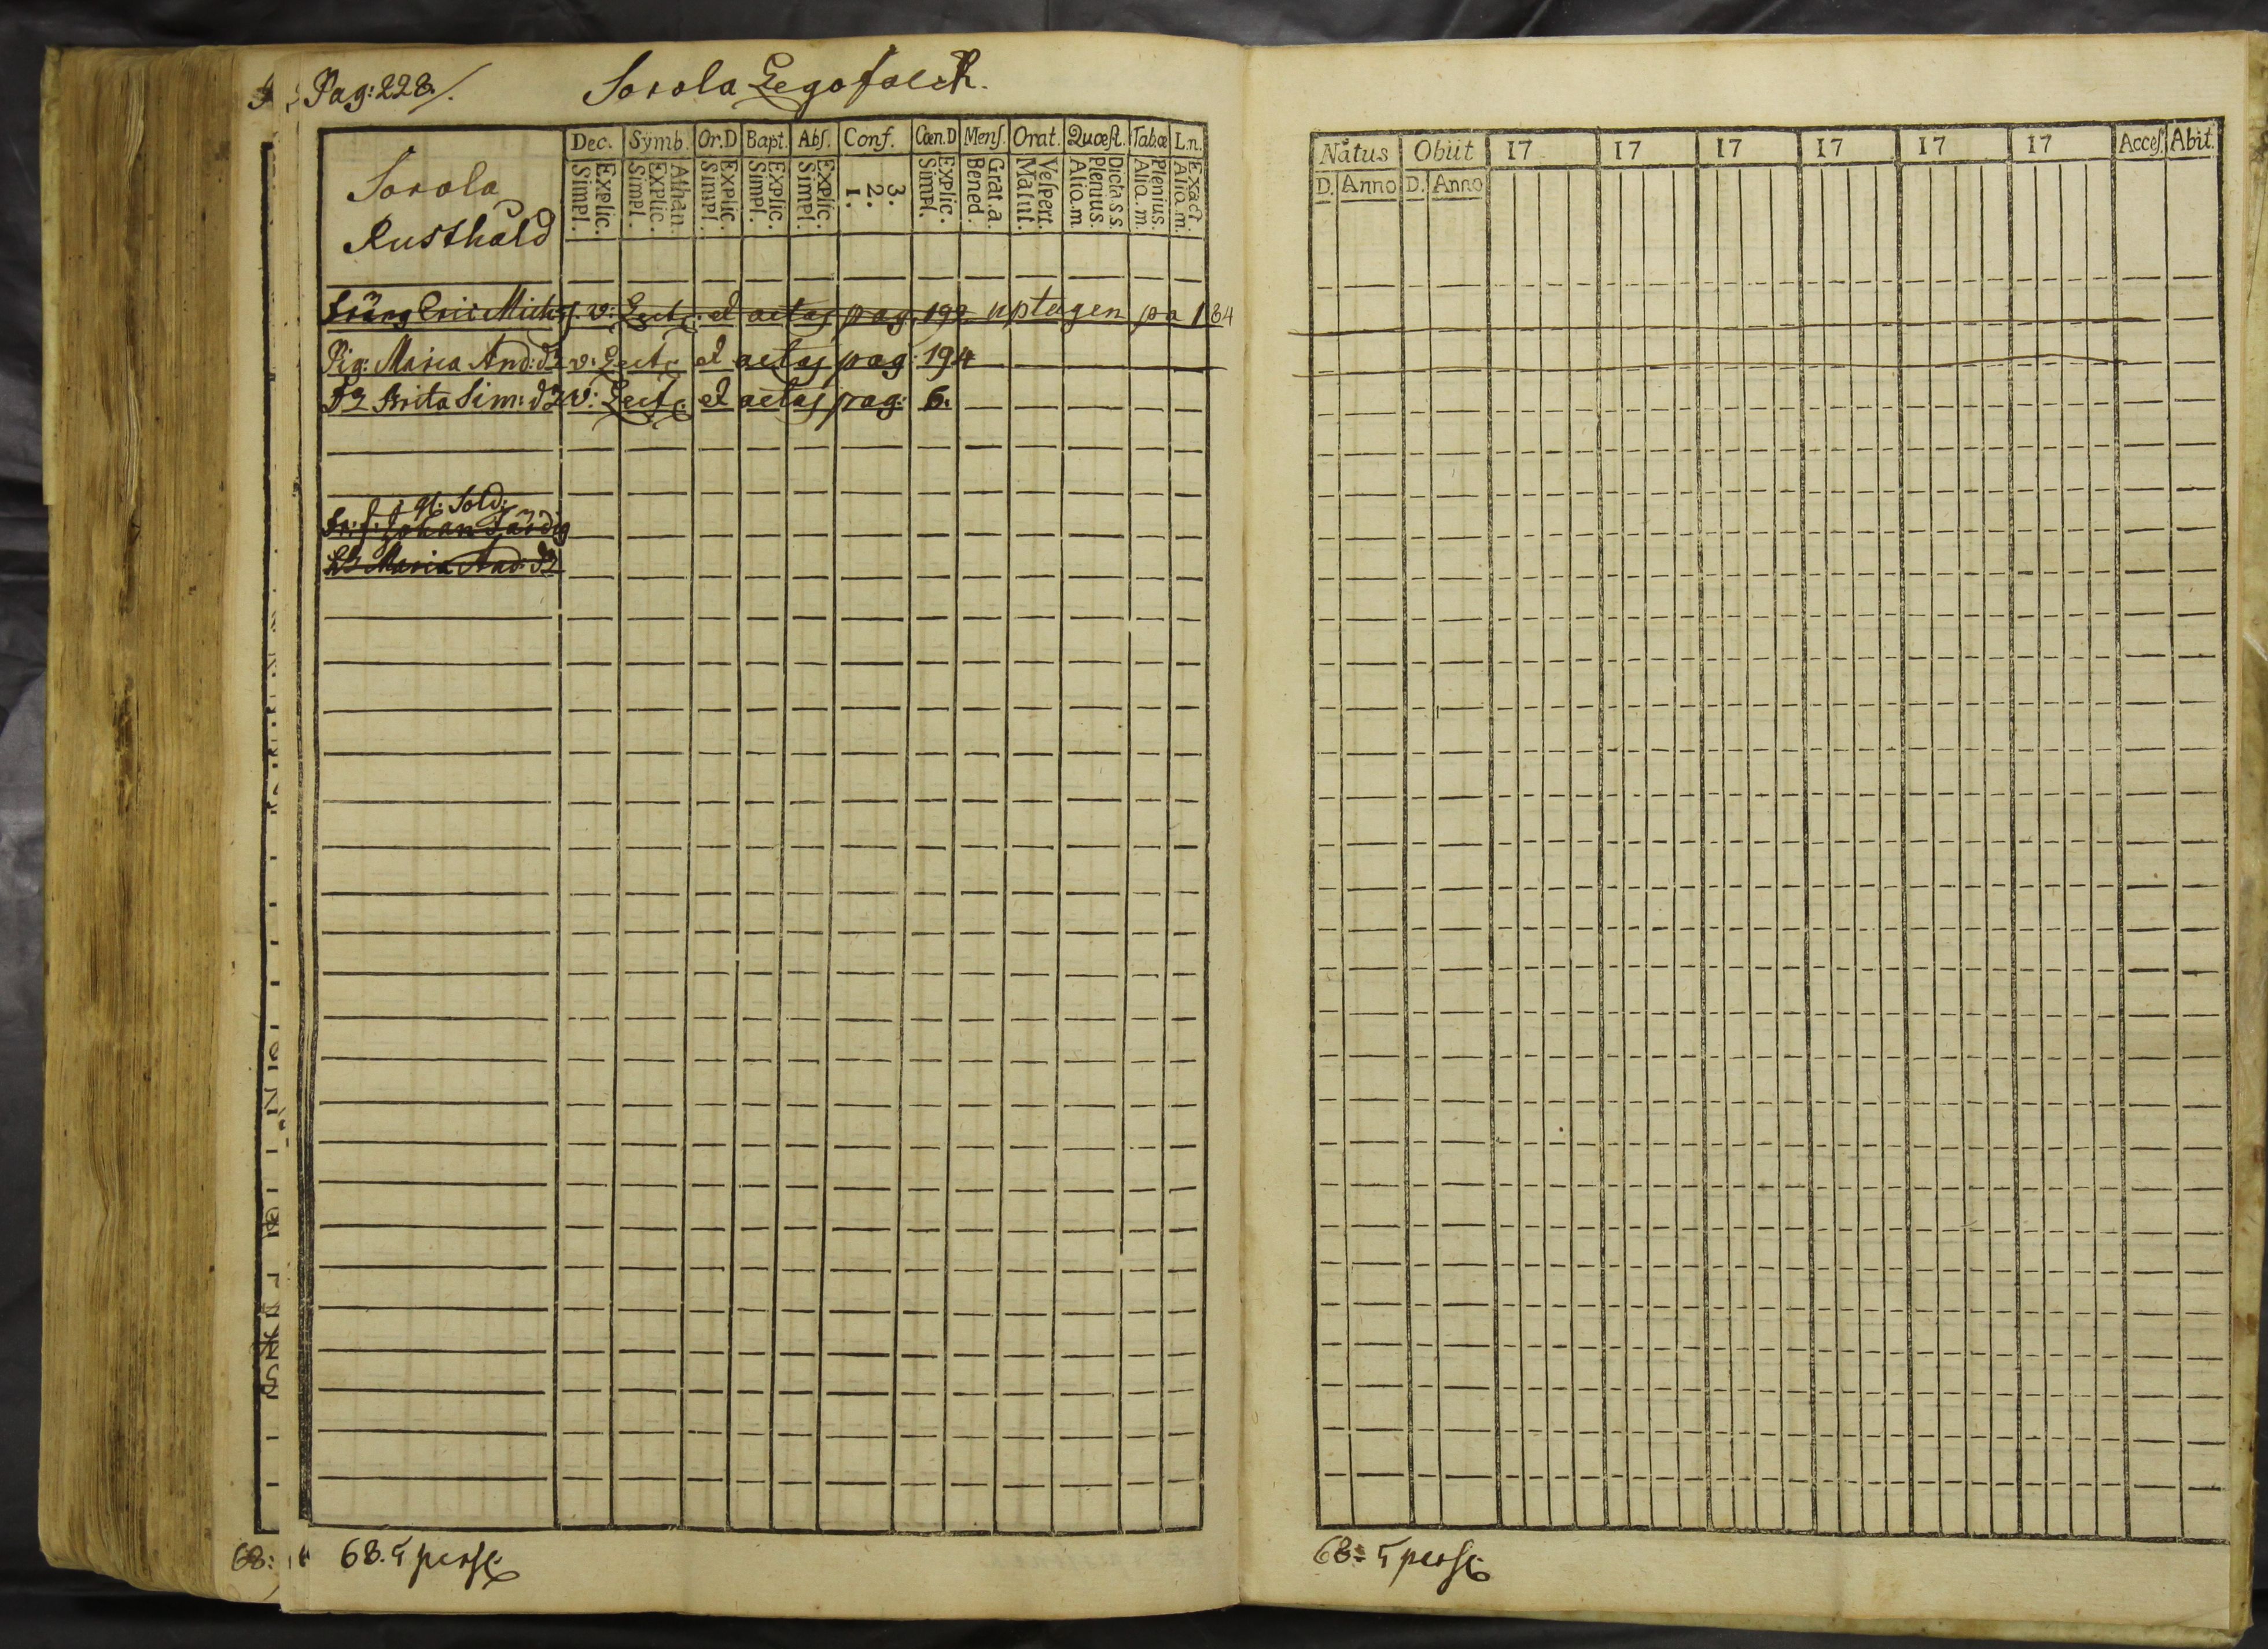 Pag: 228./.
Sorola Legofolck.
Sorola
Rusthåld
Dec. Symb. Or.D Bapt. Abs. Conf. Cœn.D Mens. Orat. Quæst. Tabæ L.n.
Explic. Simpl. Athan. Explic. Simpl. Explic. Simpl. Explic. Simpl. Explic. Simpl. 3. 2. 1. Explic. Simpl. Grat.a. Bened. Vespert. Matut. Dicta s.s. Plenius. Aliq.m Plenius. Aliq.m. Exact. Aliq.m.
Dräng Eric Michs. v: Lect: et aetas pag. 192 uptagen pa 164
Pig: Maria And: dr v: Lect: et aetas pag: 194
Dr Brita Sim: dr v: Lect: et aetas pag: 6.
gl: Sold:
Johan Färdig
Maria And: dr
68. 5 pers:
Natus Obiit 17 17 17 17 17 17 Acces. Abit.
D. Anno D. Anno
68: 5 pers:
68: